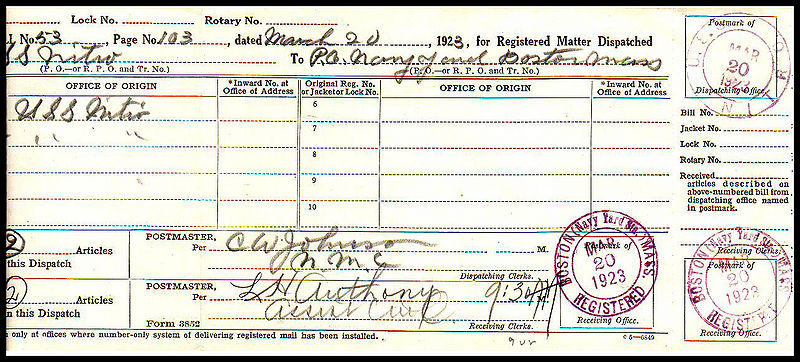 Lock No. Rotary No.
L No. 53, Page No. 103, dated March 20, 1923, for Registered Matter Dispatched
SS Nitro To P.O. Navy Yard Boston Mass
(P. O.—or R. P. O. and Tr. No.) (P. O.—or R. P. O. and Tr. No.)
OFFICE OF ORIGIN *Inward No. at Office of Address Original Reg. No. or Jacket or Lock No. OFFICE OF ORIGIN *Inward No. at Office of Address
USS Nitro 6
" " 7
8
9
10
2 Articles
this Dispatch
POSTMASTER,
Per C W Johnson M.
N.M.C
Dispatching Clerks.
2 Articles
in this Dispatch
POSTMASTER,
Per L H Anthony 9:30
Form 3852 Receiving Clerks.
only at offices where number-only system of delivering registered mail has been installed. c 5—6849
Postmark of
BOSTON (Navy Yard Sta.) MASS.
MAR
20
1923
REGISTERED
Receiving Office.
Postmark of
U.S.S.
MAR
20
1923
Dispatching Office.
Bill No.
Jacket No.
Lock No.
Rotary No.
Received
articles described on
above-numbered bill from
dispatching office named
in postmark.
Receiving Clerk.
Postmark of
BOSTON (Navy Yard Sta.) MASS.
MAR
20
1923
REGISTERED
Receiving Office.